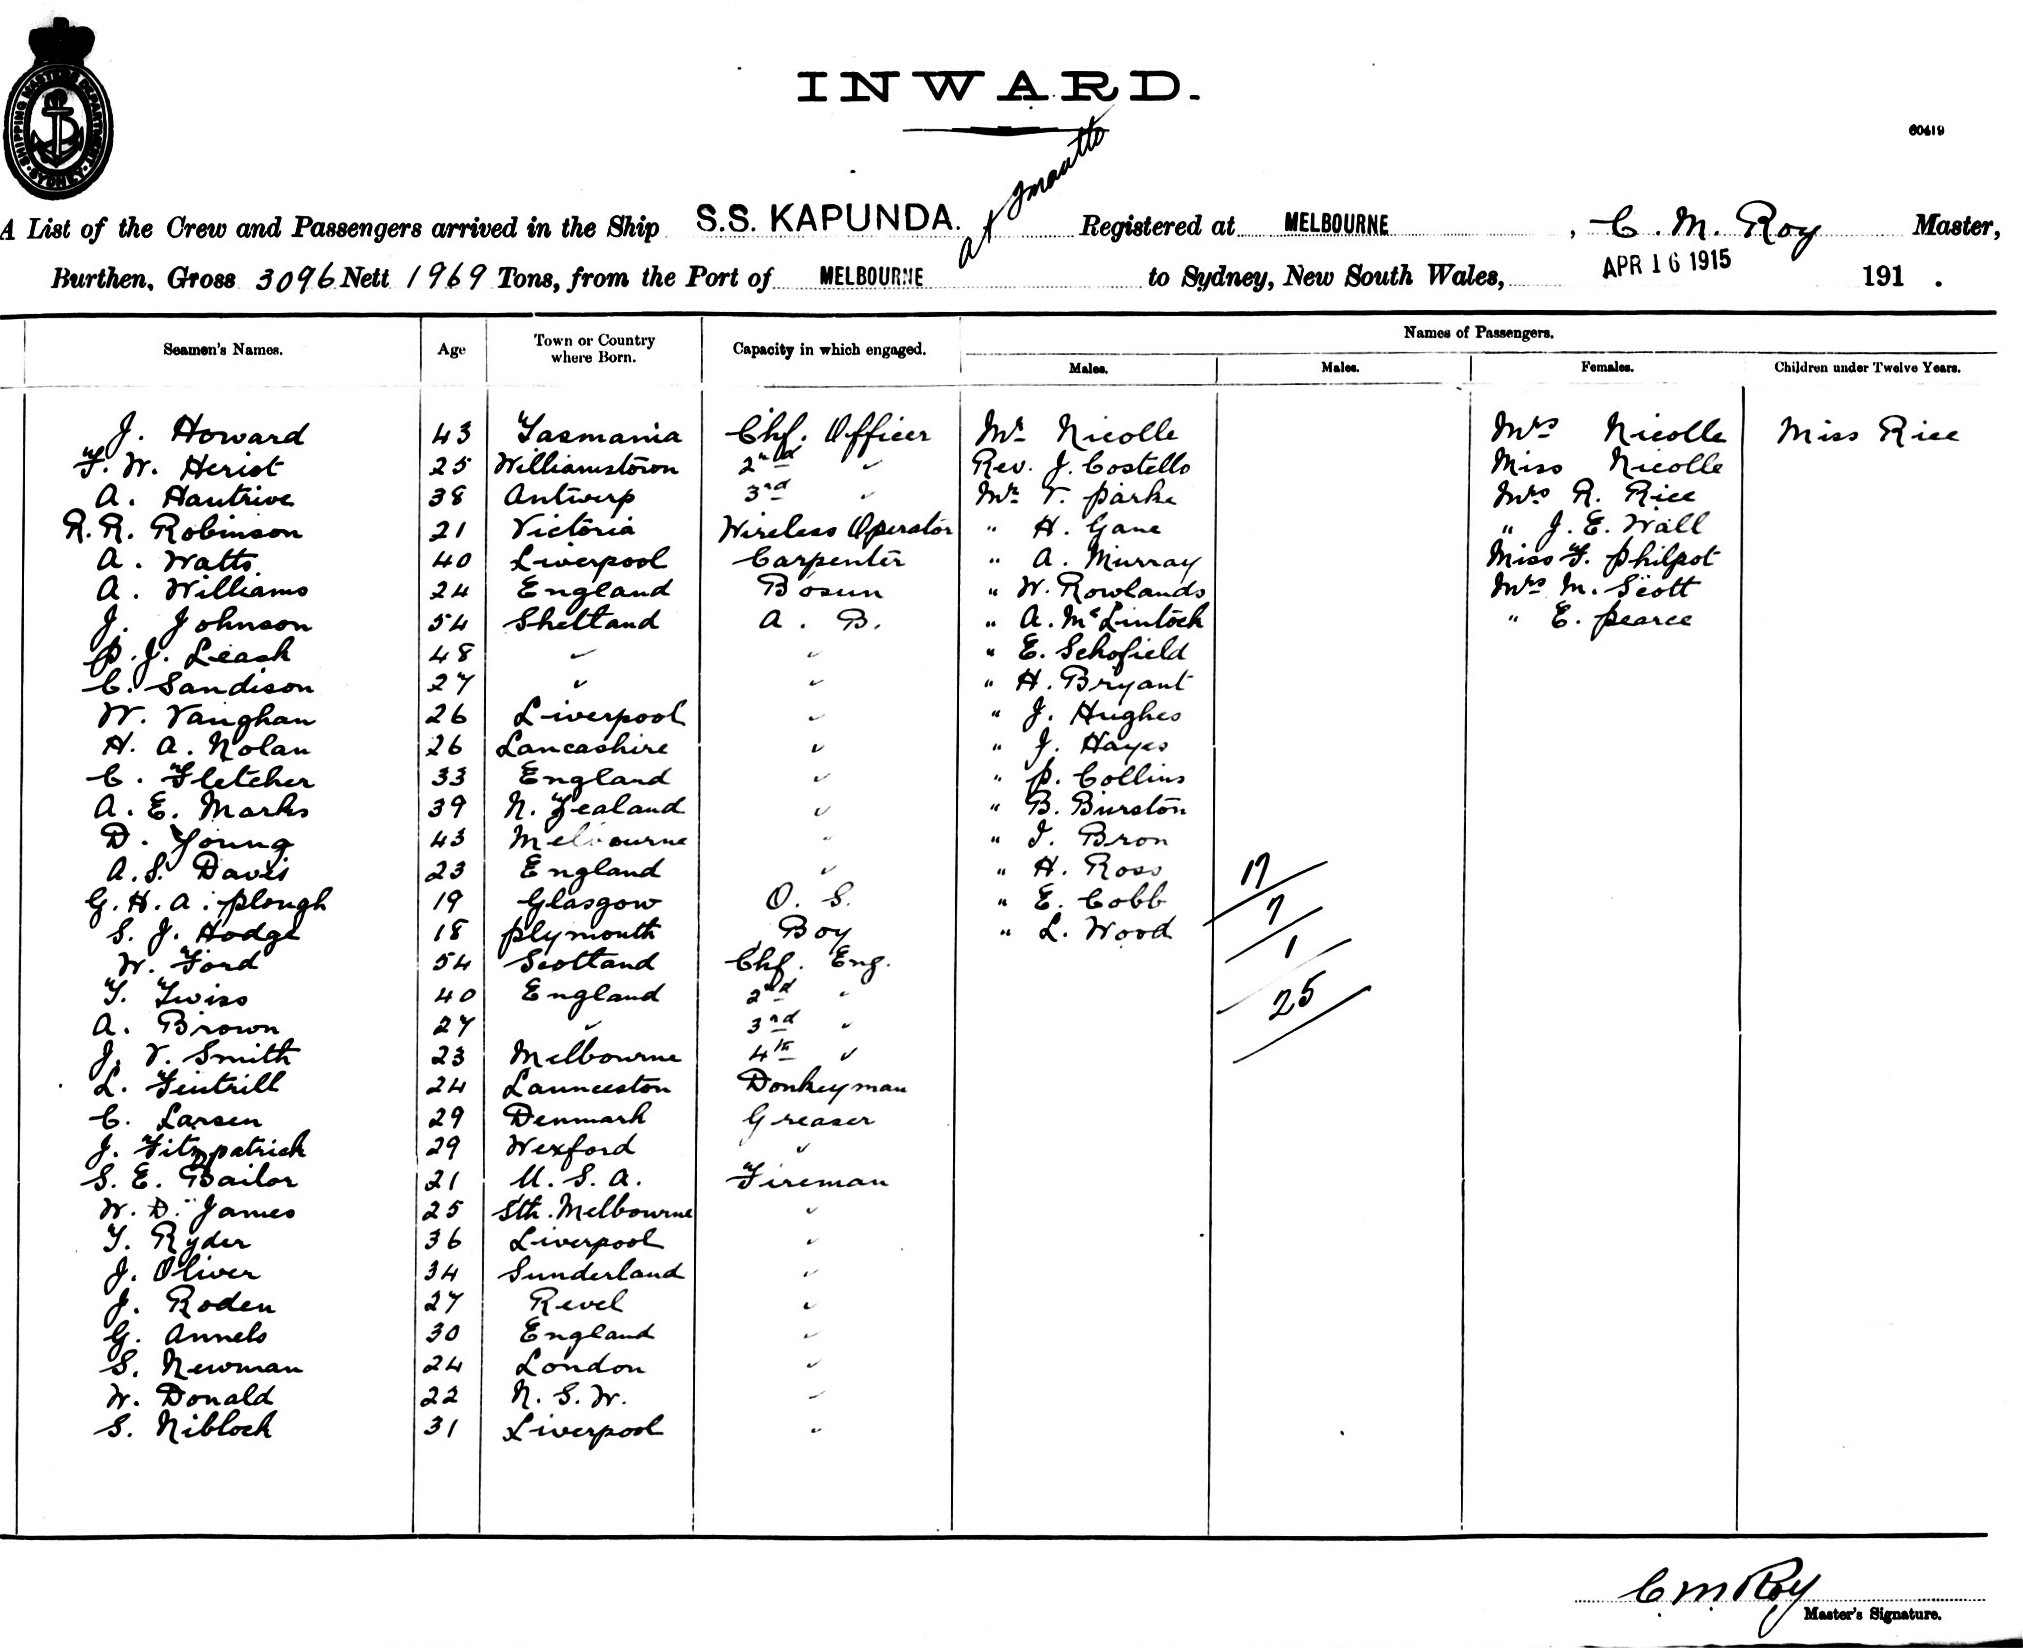 SHIPPING MASTER'S DEPARTMENT SYDNEY
INWARD.
60419
A List of the Crew and Passengers arrived in the Ship S.S. KAPUNDA. at Registered at MELBOURNE, C. M. Roy Master,
Burthen, Gross 3096 Nett 1969 Tons, from the Port of MELBOURNE to Sydney, New South Wales, APR 16 1915 191 .
Names of Passengers.
Seamen's Names. Age Town or Country where Born. Capacity in which engaged. Males. Males. Females. Children under Twelve Years.
J. Howard 43 Tasmania Chf. Officer Mr Nicolle Mrs Nicolle Miss Rice
F. W. Heriot 25 Williamstown 2nd " Rev. J. Costello Miss Nicolle
A. Hautrive 38 Antwerp 3rd " Mr V. Parke Mrs R. Rice
R. R. Robinson 21 Victoria Wireless Operator " H. Gane " J. E. Wall
A. Watts 40 Liverpool Carpenter " A. Murray Miss F. Philpot
A. Williams 24 England Bosun " W. Rowlands Mrs M. Scott
J. Johnson 54 Shetland A. B. " A. McLintock " E. Pearce
P. J. Leask 48 " " " E. Schofield
C. Sandison 27 " " " H. Bryant
W. Vaughan 26 Liverpool " " J. Hughes
H. A. Nolan 26 Lancashire " " J. Hayes
C. Fletcher 33 England " " P. Collins
A. E. Marks 39 N. Zealand " " B. Burston
D. Young 43 Melbourne " " I. Bron
A. S. Davis 23 England " " H. Ross 17
G. H. A. Plough 19 Glasgow O. S. " E. Cobb 7
S. J. Hodge 18 Plymouth Boy " L. Wood 1
W. Ford 54 Scotland Chf. Eng.
T. Twiss 40 England 2nd " 25
A. Brown 27 " 3rd "
J. V. Smith 23 Melbourne 4th "
L. Fentrill 24 Launceston Donkeyman
C. Larsen 29 Denmark Greaser
J. Fitzpatrick 29 Wexford "
S. E. Bailor 21 U. S. A. Fireman
W. D. James 25 Sth. Melbourne "
T. Ryder 36 Liverpool "
J. Oliver 34 Sunderland "
J. Roden 27 Revel "
G. Annels 30 England "
S. Newman 24 London "
W. Donald 22 N. S. W. "
S. Niblock 31 Liverpool "
C M Roy
Master's Signature.